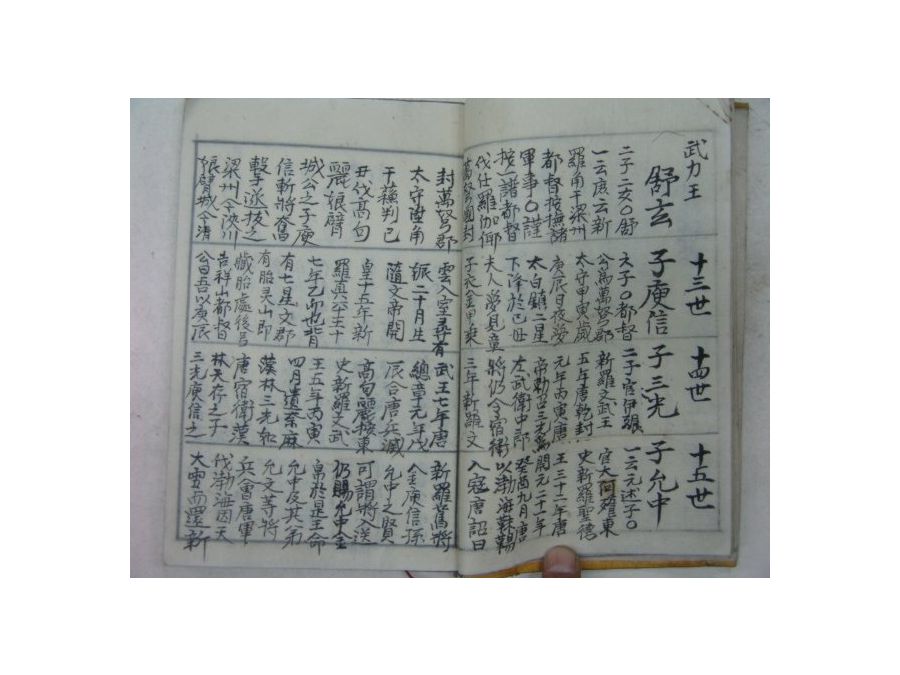 武力王
舒玄
二子二女○舒
一云庶云新
羅角干梁州
都督按撫諸
軍事○謹
按諸都督
伐仕羅伽倻
萬弩國封
封萬弩郡
太守陞角
干蘓判已
丑伐高句
麗娘臂
城公之子庾
信斬將奮
擊遂拔之
梁州今陜川
娘臂城今清
十三世
子庾信
六子○都督
公爲萬弩郡
太守甲寅歲
庚辰日夜夢
太白鎮二星
下降於已母
夫人夢見童
子衣金甲乘
雲入室尋有
娠二十月生
隨文帝開
皇十五年新
羅真平王十
七年乙卯也背
有七星文郡
有胎灵山即
藏胎處後
吉祥山都督
公曰吾以庚辰
十四世
子三光
二子官伊飡
新羅文武王
五年唐乾封
元年丙寅唐
帝勅召三光爲
左武衛中郎
將仍令宿衛
三年新羅文
武王七年唐
總章元年戊
辰合唐兵滅
高句麗按東
史新羅文武
王五年丙寅
四月遺奈麻
漢林三光於
唐宿衛漢
林天存之子
三光庾信之
十五世
子允中
一云元述子○
官大阿飡東
史新羅聖德
王三十二年唐
開元二十一年
癸酉九月唐
以渤海靺鞨
入寇唐詔曰
新羅舊將
金庾信孫
允中之賢
可謂將入送
仍賜允中金
帛於是王命
允中及其弟
允文等將
兵會唐軍
伐渤海因天
大雪而還新